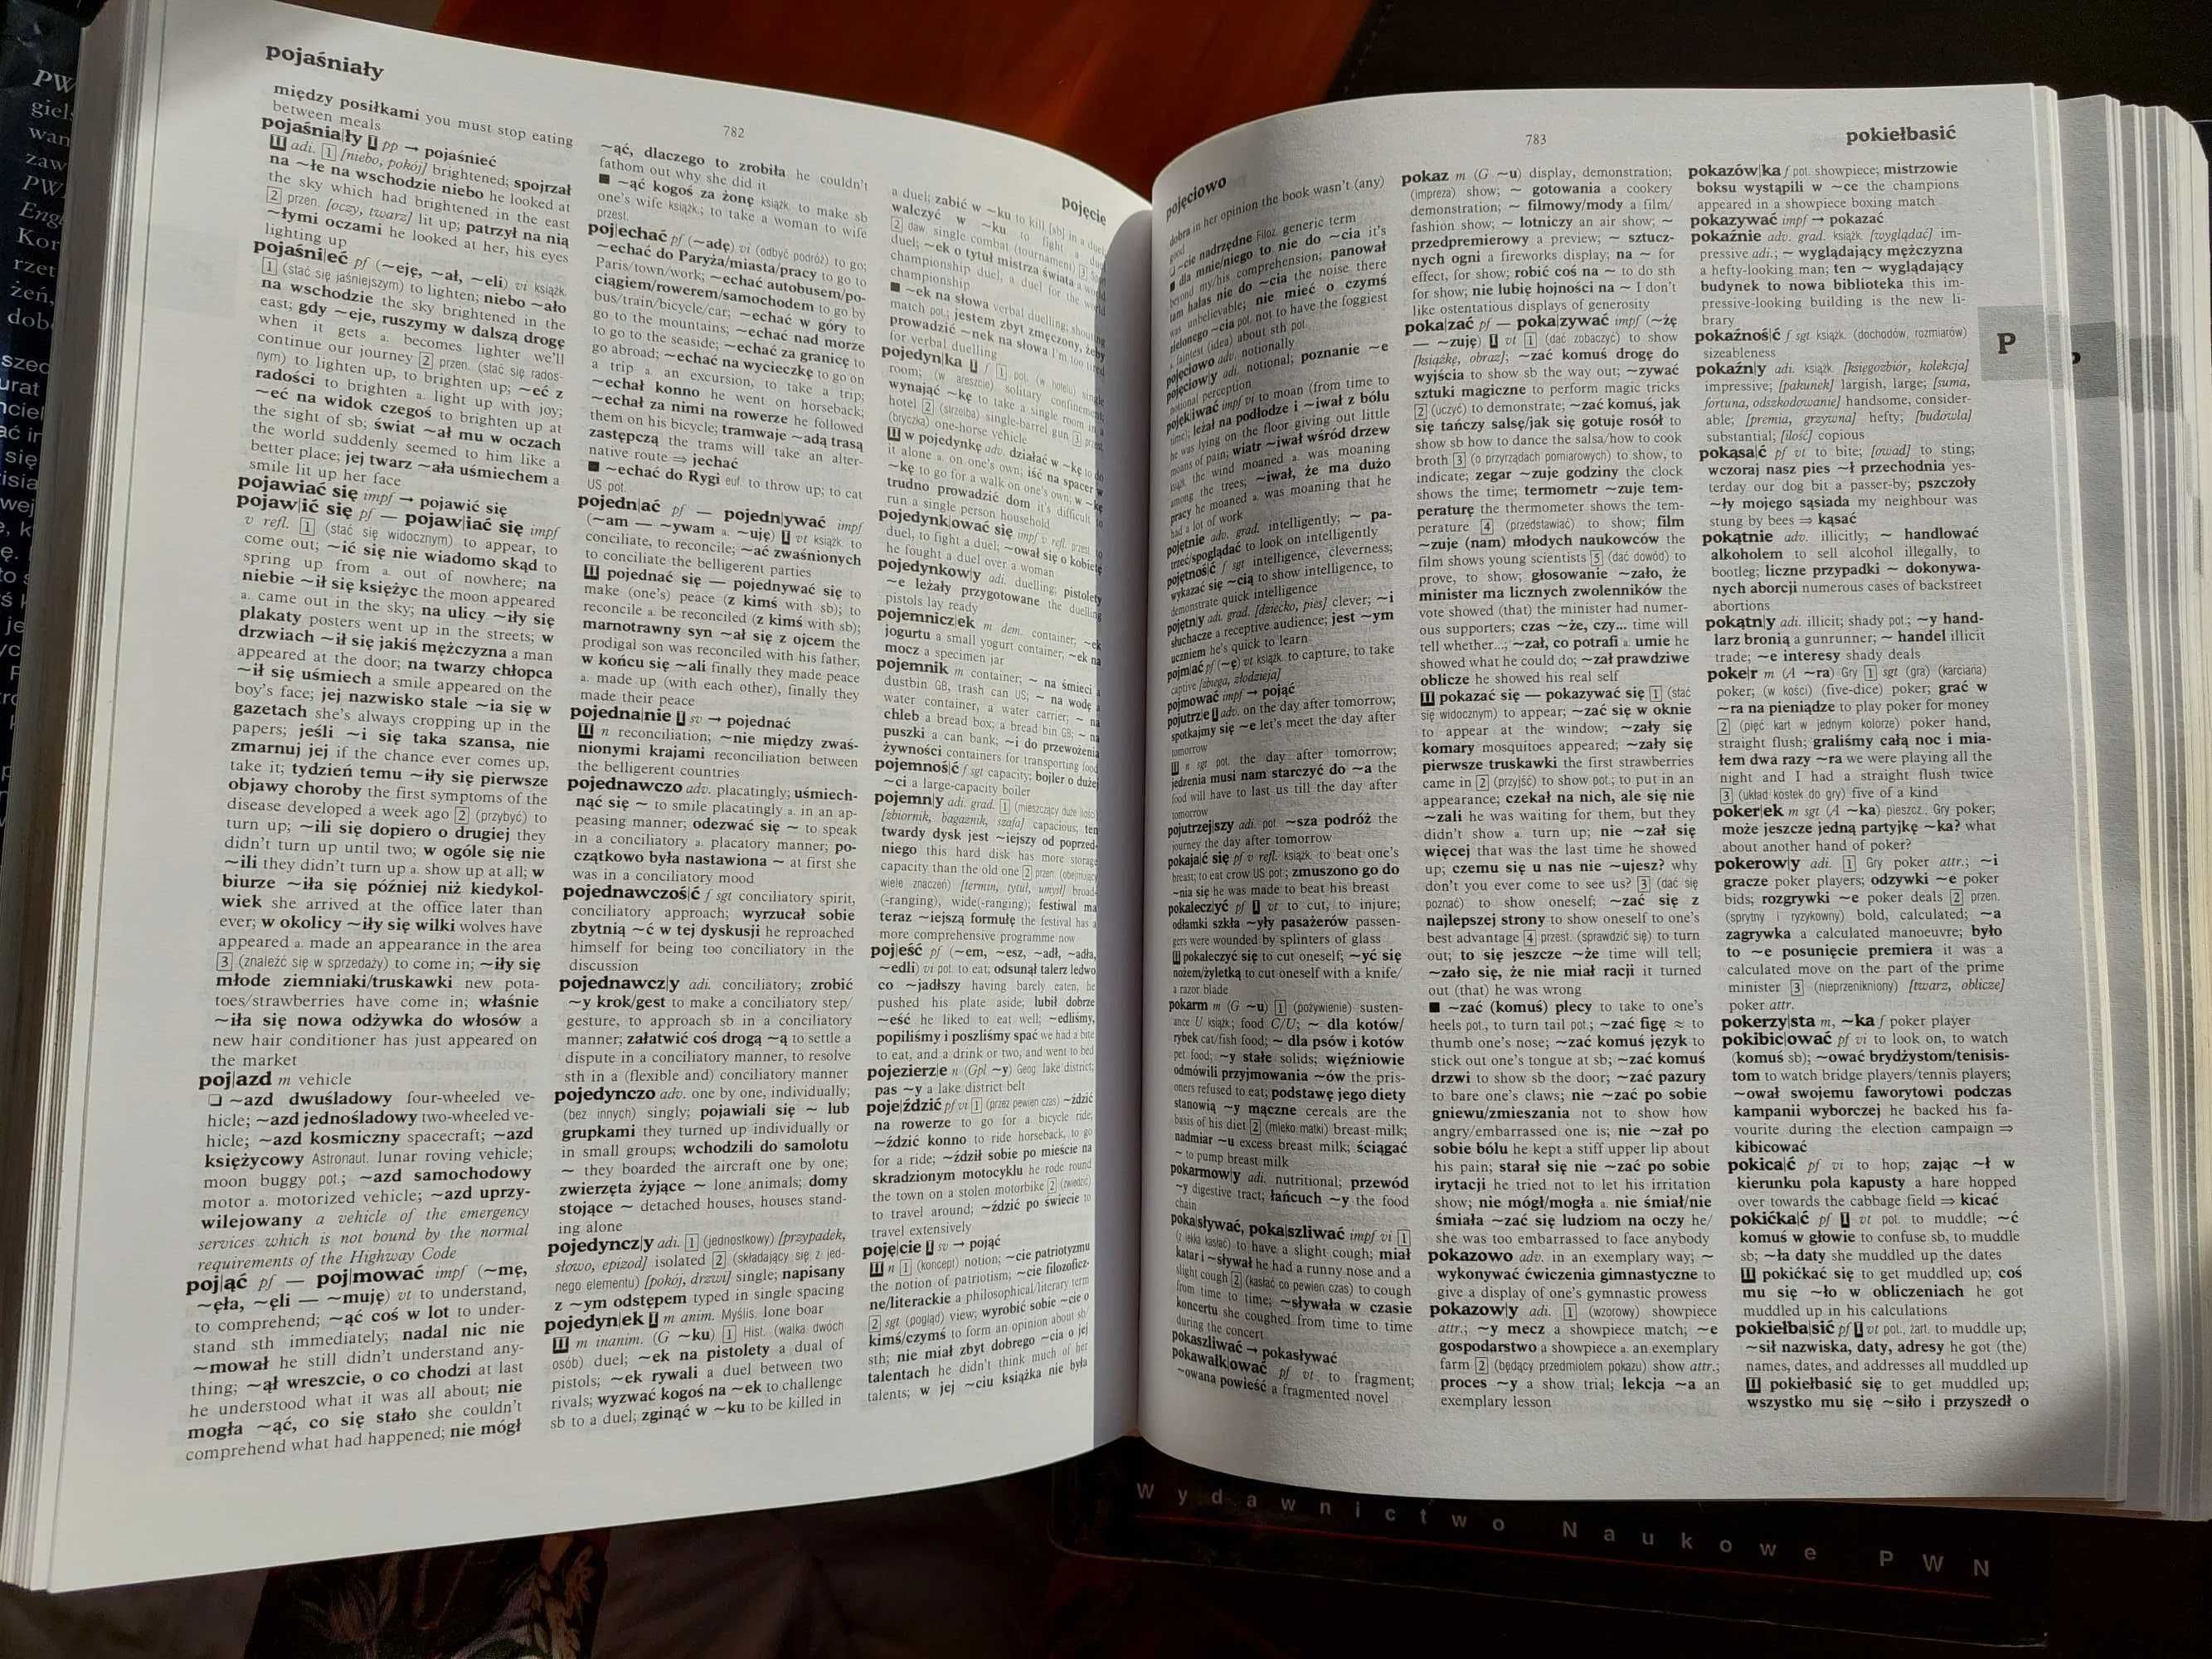 pojaśniały
782
pojęcie
między posiłkami you must stop eating
between meals
pojaśnia|ły I pp → pojaśnieć
II adi. 1 [niebo, pokój] brightened; spojrzał
na ~łe na wschodzie niebo he looked at
the sky which had brightened in the east
2 przen. [oczy, twarz] lit up; patrzył na nią
~łymi oczami he looked at her, his eyes
lighting up
pojaśni|eć pf (~eję, ~ał, ~eli) vi książk.
1 (stać się jaśniejszym) to lighten; niebo ~ało
na wschodzie the sky brightened in the
east; gdy ~eje, ruszymy w dalszą drogę
when it gets a. becomes lighter we'll
continue our journey 2 przen. (stać się rados-
nym) to lighten up, to brighten up; ~eć z
radości to brighten a. light up with joy;
~eć na widok czegoś to brighten up at
the sight of sb; świat ~ał mu w oczach
the world suddenly seemed to him like a
better place; jej twarz ~ała uśmiechem a
smile lit up her face
pojawiać się impf → pojawić się
pojaw|ić się pf — pojaw|iać się impf
v refl. 1 (stać się widocznym) to appear, to
come out; ~ić się nie wiadomo skąd to
spring up from a. out of nowhere; na
niebie ~ił się księżyc the moon appeared
a. came out in the sky; na ulicy ~iły się
plakaty posters went up in the streets; w
drzwiach ~ił się jakiś mężczyzna a man
appeared at the door; na twarzy chłopca
~ił się uśmiech a smile appeared on the
boy's face; jej nazwisko stale ~ia się w
gazetach she's always cropping up in the
papers; jeśli ~i się taka szansa, nie
zmarnuj jej if the chance ever comes up,
take it; tydzień temu ~iły się pierwsze
objawy choroby the first symptoms of the
disease developed a week ago 2 (przybyć) to
turn up; ~ili się dopiero o drugiej they
didn't turn up until two; w ogóle się nie
~ili they didn't turn up a. show up at all; w
biurze ~iła się później niż kiedykol-
wiek she arrived at the office later than
ever; w okolicy ~iły się wilki wolves have
appeared a. made an appearance in the area
3 (znaleźć się w sprzedaży) to come in; ~iły się
młode ziemniaki/truskawki new pota-
toes/strawberries have come in; właśnie
~iła się nowa odżywka do włosów a
new hair conditioner has just appeared on
the market
poj|azd m vehicle
❑ ~azd dwuśladowy four-wheeled ve-
hicle; ~azd jednośladowy two-wheeled ve-
hicle; ~azd kosmiczny spacecraft; ~azd
księżycowy Astronaut. lunar roving vehicle;
moon buggy pot.; ~azd samochodowy
motor a. motorized vehicle; ~azd uprzy-
wilejowany a vehicle of the emergency
services which is not bound by the normal
requirements of the Highway Code
poj|ąć pf — poj|mować impf (~mę,
~ęła, ~ęli — ~muję) vt to understand,
to comprehend; ~ąć coś w lot to under-
stand sth immediately; nadal nic nie
~mował he still didn't understand any-
thing; ~ął wreszcie, o co chodzi at last
he understood what it was all about; nie
mogła ~ąć, co się stało she couldn't
comprehend what had happened; nie mógł
~ąć, dlaczego to zrobiła he couldn't
fathom out why she did it
■ ~ąć kogoś za żonę książk. to make sb
one's wife książk.; to take a woman to wife
przest.
poj|echać pf (~adę) vi (odbyć podróż) to go;
~echać do Paryża/miasta/pracy to go to
Paris/town/work; ~echać autobusem/po-
ciągiem/rowerem/samochodem to go by
bus/train/bicycle/car; ~echać w góry to
go to the mountains; ~echać nad morze
to go to the seaside; ~echać za granicę to
go abroad; ~echać na wycieczkę to go on
a trip a. an excursion, to take a trip;
~echał konno he went on horseback;
~echał za nimi na rowerze he followed
them on his bicycle; tramwaje ~adą trasą
zastępczą the trams will take an alter-
native route ⇒ jechać
■ ~echać do Rygi euf. to throw up; to cat
US pot.
pojedn|ać pf — pojedn|ywać impf
(~am — ~ywam a. ~uję) I vt książk. to
conciliate, to reconcile; ~ać zwaśnionych
to conciliate the belligerent parties
II pojednać się — pojednywać się to
make (one's) peace (z kimś with sb); to
reconcile a. be reconciled (z kimś with sb);
marnotrawny syn ~ał się z ojcem the
prodigal son was reconciled with his father;
w końcu się ~ali finally they made peace
a. made up (with each other), finally they
made their peace
pojedna|nie I sv → pojednać
II n reconciliation; ~nie między zwaś-
nionymi krajami reconciliation between
the belligerent countries
pojednawczo adv. placatingly; uśmiech-
nąć się ~ to smile placatingly a. in an ap-
peasing manner; odezwać się ~ to speak
in a conciliatory a. placatory manner; po-
czątkowo była nastawiona ~ at first she
was in a conciliatory mood
pojednawczoś|ć f sgt conciliatory spirit,
conciliatory approach; wyrzucał sobie
zbytnią ~ć w tej dyskusji he reproached
himself for being too conciliatory in the
discussion
pojednawcz|y adi. conciliatory; zrobić
~y krok/gest to make a conciliatory step/
gesture, to approach sb in a conciliatory
manner; załatwić coś drogą ~ą to settle a
dispute in a conciliatory manner, to resolve
sth in a (flexible and) conciliatory manner
pojedynczo adv. one by one, individually;
(bez innych) singly; pojawiali się ~ lub
grupkami they turned up individually or
in small groups; wchodzili do samolotu
~ they boarded the aircraft one by one;
zwierzęta żyjące ~ lone animals; domy
stojące ~ detached houses, houses stand-
ing alone
pojedyncz|y adi. 1 (jednostkowy) [przypadek,
słowo, epizod] isolated 2 (składający się z jed-
nego elementu) [pokój, drzwi] single; napisany
z ~ym odstępem typed in single spacing
pojedyn|ek I m anim. Myślis. lone boar
II m inanim. (G ~ku) 1 Hist. (walka dwóch
osób) duel; ~ek na pistolety a dual of
pistols; ~ek rywali a duel between two
rivals; wyzwać kogoś na ~ek to challenge
sb to a duel; zginąć w ~ku to be killed in
a duel; zabić w ~ku to kill [sb] in a duel
walczyć w ~ku to fight a
2 daw. single combat (tournament) 3
duel; ~ek o tytuł mistrza świata a world
championship duel, a duel for the world
championship
■ ~ek na słowa verbal duelling;
match pot.; jestem zbyt zmęczony, żeby
prowadzić ~nek na słowa I'm too tired
for verbal duelling
pojedyn|ka I f 1 pot. (w hotelu) single
room; (w areszcie) solitary confinement;
wynająć ~kę to take a single room in a
hotel 2 (strzelba) single-barrel gun 3 przest.
(bryczka) one-horse vehicle
II w pojedynkę adv. działać w ~kę to do
it alone a. on one's own; iść na spacer w
~kę to go for a walk on one's own; w ~kę
trudno prowadzić dom it's difficult to
run a single person household
pojedynk|ować się impf v refl. przest. to
duel, to fight a duel; ~ował się o kobietę
he fought a duel over a woman
pojedynkow|y adi. duelling; pistolety
~e leżały przygotowane the duelling
pistols lay ready
pojemnicz|ek m dem. container; ~ek
jogurtu a small yogurt container; ~ek na
mocz a specimen jar
pojemnik m container; ~ na śmieci a
dustbin GB, trash can US; ~ na wodę a
water container, a water carrier; ~ na
chleb a bread box; a bread bin GB; ~ na
puszki a can bank; ~i do przewożenia
żywności containers for transporting food
pojemnoś|ć f sgt capacity; bojler o dużej
~ci a large-capacity boiler
pojemn|y adi. grad. 1 (mieszczący duże ilości)
[zbiornik, bagażnik, szafa] capacious; ten
twardy dysk jest ~iejszy od poprzed-
niego this hard disk has more storage
capacity than the old one 2 przen. (obejmujący
wiele znaczeń) [termin, tytuł, umysł] broad-
(-ranging), wide(-ranging); festiwal ma
teraz ~iejszą formułę the festival has a
more comprehensive programme now
poj|eść pf (~em, ~esz, ~adł, ~adła,
~edli) vi pot. to eat; odsunął talerz ledwo
co ~jadłszy having barely eaten, he
pushed his plate aside; lubił dobrze
~eść he liked to eat well; ~edliśmy,
popiliśmy i poszliśmy spać we had a bite
to eat, and a drink or two, and went to bed
pojezierz|e n (Gpl ~y) Geog. lake district;
pas ~y a lake district belt
poje|ździć pf vt 1 (przez pewien czas) ~ździć
na rowerze to go for a bicycle ride;
~ździć konno to ride horseback, to go
for a ride; ~ździł sobie po mieście na
skradzionym motocyklu he rode round
the town on a stolen motorbike 2 (zwiedzić)
to travel around; ~ździć po świecie to
travel extensively
poję|cie I sv → pojąć
II n 1 (koncept) notion; ~cie patriotyzmu
the notion of patriotism; ~cie filozoficz-
ne/literackie a philosophical/literary term
2 sgt (pogląd) view; wyrobić sobie ~cie o
kimś/czymś to form an opinion about sb/
sth; nie miał zbyt dobrego ~cia o jej
talentach he didn't think much of her
talents; w jej ~ciu książka nie była
pojęciowo
783
pokiełbasić
dobra in her opinion the book wasn't (any)
good
❑ ~cie nadrzędne Filoz. generic term
■ dla mnie/niego to nie do ~cia it's
beyond my/his comprehension; panował
tam hałas nie do ~cia the noise there
was unbelievable; nie mieć o czymś
zielonego ~cia pot. not to have the foggiest
a. faintest (idea) about sth pot.
pojęciowo adv. notionally
pojęciow|y adi. notional; poznanie ~e
notional perception
pojęk|iwać impf vi to moan (from time to
time); leżał na podłodze i ~iwał z bólu
he was lying on the floor giving out little
moans of pain; wiatr ~iwał wśród drzew
książk. the wind moaned a. was moaning
among the trees; ~iwał, że ma dużo
pracy he moaned a. was moaning that he
had a lot of work
pojętnie adv. grad. intelligently; ~ pa-
trzeć/spoglądać to look on intelligently
pojętnoś|ć f sgt intelligence, cleverness;
wykazać się ~cią to show intelligence, to
demonstrate quick intelligence
pojętn|y adi. grad. [dziecko, pies] clever; ~i
słuchacze a receptive audience; jest ~ym
uczniem he's quick to learn
pojm|ać pf (~ę) vt książk. to capture, to take
captive [zbiega, złodzieja]
pojmować impf → pojąć
pojutrz|e I adv. on the day after tomorrow;
spotkajmy się ~e let's meet the day after
tomorrow
II n sgt pot. the day after tomorrow;
jedzenia musi nam starczyć do ~a the
food will have to last us till the day after
tomorrow
pojutrzej|szy adi. pot. ~sza podróż the
journey the day after tomorrow
pokaja|ć się pf v refl. książk. to beat one's
breast; to eat crow US pot.; zmuszono go do
~nia się he was made to beat his breast
pokalecz|yć pf I vt to cut, to injure;
odłamki szkła ~yły pasażerów passen-
gers were wounded by splinters of glass
II pokaleczyć się to cut oneself; ~yć się
nożem/żyletką to cut oneself with a knife/
a razor blade
pokarm m (G ~u) 1 (pożywienie) susten-
ance U książk.; food C/U; ~ dla kotów/
rybek cat/fish food; ~ dla psów i kotów
pet food; ~y stałe solids; więźniowie
odmówili przyjmowania ~ów the pris-
oners refused to eat; podstawę jego diety
stanowią ~y mączne cereals are the
basis of his diet 2 (mleko matki) breast milk;
nadmiar ~u excess breast milk; ściągać
~ to pump breast milk
pokarmow|y adi. nutritional; przewód
~y digestive tract; łańcuch ~y the food
chain
poka|sływać, poka|szliwać impf vi 1
(z lekka kasłać) to have a slight cough; miał
katar i ~sływał he had a runny nose and a
slight cough 2 (kasłać co pewien czas) to cough
from time to time; ~sływała w czasie
koncertu she coughed from time to time
during the concert
pokaszliwać → pokasływać
pokawałk|ować pf vt to fragment;
~owana powieść a fragmented novel
pokaz m (G ~u) display, demonstration;
(impreza) show; ~ gotowania a cookery
demonstration; ~ filmowy/mody a film/
fashion show; ~ lotniczy an air show; ~
przedpremierowy a preview; ~ sztucz-
nych ogni a fireworks display; na ~ for
effect, for show; robić coś na ~ to do sth
for show; nie lubię hojności na ~ I don't
like ostentatious displays of generosity
poka|zać pf — poka|zywać impf (~żę
— ~zuję) I vt 1 (dać zobaczyć) to show
[książkę, obraz]; ~zać komuś drogę do
wyjścia to show sb the way out; ~zywać
sztuki magiczne to perform magic tricks
2 (uczyć) to demonstrate; ~zać komuś, jak
się tańczy salsę/jak się gotuje rosół to
show sb how to dance the salsa/how to cook
broth 3 (o przyrządach pomiarowych) to show, to
indicate; zegar ~zuje godziny the clock
shows the time; termometr ~zuje tem-
peraturę the thermometer shows the tem-
perature 4 (przedstawiać) to show; film
~zuje (nam) młodych naukowców the
film shows young scientists 5 (dać dowód) to
prove, to show; głosowanie ~zało, że
minister ma licznych zwolenników the
vote showed (that) the minister had numer-
ous supporters; czas ~że, czy... time will
tell whether...; ~zał, co potrafi a. umie he
showed what he could do; ~zał prawdziwe
oblicze he showed his real self
II pokazać się — pokazywać się 1 (stać
się widocznym) to appear; ~zać się w oknie
to appear at the window; ~zały się
komary mosquitoes appeared; ~zały się
pierwsze truskawki the first strawberries
came in 2 (przyjść) to show pot.; to put in an
appearance; czekał na nich, ale się nie
~zali he was waiting for them, but they
didn't show a. turn up; nie ~zał się
więcej that was the last time he showed
up; czemu się u nas nie ~ujesz? why
don't you ever come to see us? 3 (dać się
poznać) to show oneself; ~zać się z
najlepszej strony to show oneself to one's
best advantage 4 przest. (sprawdzić się) to turn
out; to się jeszcze ~że time will tell;
~zało się, że nie miał racji it turned
out (that) he was wrong
■ ~zać (komuś) plecy to take to one's
heels pot., to turn tail pot.; ~zać figę ≈ to
thumb one's nose; ~zać komuś język to
stick out one's tongue at sb; ~zać komuś
drzwi to show sb the door; ~zać pazury
to bare one's claws; nie ~zać po sobie
gniewu/zmieszania not to show how
angry/embarrassed one is; nie ~zał po
sobie bólu he kept a stiff upper lip about
his pain; starał się nie ~zać po sobie
irytacji he tried not to let his irritation
show; nie mógł/mogła a. nie śmiał/nie
śmiała ~zać się ludziom na oczy he/
she was too embarrassed to face anybody
pokazowo adv. in an exemplary way; ~
wykonywać ćwiczenia gimnastyczne to
give a display of one's gymnastic prowess
pokazow|y adi. 1 (wzorowy) showpiece
attr.; ~y mecz a showpiece match; ~e
gospodarstwo a showpiece a. an exemplary
farm 2 (będący przedmiotem pokazu) show attr.;
proces ~y a show trial; lekcja ~a an
exemplary lesson
pokazów|ka f pot. showpiece; mistrzowie
boksu wystąpili w ~ce the champions
appeared in a showpiece boxing match
pokazywać impf → pokazać
pokaźnie adv. grad. książk. [wyglądać] im-
pressive adi.; ~ wyglądający mężczyzna
a hefty-looking man; ten ~ wyglądający
budynek to nowa biblioteka this im-
pressive-looking building is the new li-
brary
pokaźnoś|ć f sgt książk. (dochodów, rozmiarów)
sizeableness
pokaźn|y adi. książk. [księgozbiór, kolekcja]
impressive; [pakunek] largish, large; [suma,
fortuna, odszkodowanie] handsome, consider-
able; [premia, grzywna] hefty; [budowla]
substantial; [ilość] copious
pokąsa|ć pf vt to bite; [owad] to sting;
wczoraj nasz pies ~ł przechodnia yes-
terday our dog bit a passer-by; pszczoły
~ły mojego sąsiada my neighbour was
stung by bees ⇒ kąsać
pokątnie adv. illicitly; ~ handlować
alkoholem to sell alcohol illegally, to
bootleg; liczne przypadki ~ dokonywa-
nych aborcji numerous cases of backstreet
abortions
pokątn|y adi. illicit; shady pot.; ~y hand-
larz bronią a gunrunner; ~ handel illicit
trade; ~e interesy shady deals
poke|r m (A ~ra) Gry 1 sgt (gra) (karciana)
poker; (w kości) (five-dice) poker; grać w
~ra na pieniądze to play poker for money
2 (pięć kart w jednym kolorze) poker hand,
straight flush; graliśmy całą noc i mia-
łem dwa razy ~ra we were playing all the
night and I had a straight flush twice
3 (układ kostek do gry) five of a kind
poker|ek m sgt (A ~ka) pieszcz., Gry poker;
może jeszcze jedną partyjkę ~ka? what
about another hand of poker?
pokerow|y adi. 1 Gry poker attr.; ~i
gracze poker players; odzywki ~e poker
bids; rozgrywki ~e poker deals 2 przen.
(sprytny i ryzykowny) bold, calculated; ~a
zagrywka a calculated manoeuvre; było
to ~e posunięcie premiera it was a
calculated move on the part of the prime
minister 3 (nieprzenikniony) [twarz, oblicze]
poker attr.
pokerzy|sta m, ~ka f poker player
pokibic|ować pf vi to look on, to watch
(komuś sb); ~ować brydżystom/tenisis-
tom to watch bridge players/tennis players;
~ował swojemu faworytowi podczas
kampanii wyborczej he backed his fa-
vourite during the election campaign ⇒
kibicować
pokica|ć pf vi to hop; zając ~ł w
kierunku pola kapusty a hare hopped
over towards the cabbage field ⇒ kicać
pokićka|ć pf I vt pot. to muddle; ~ć
komuś w głowie to confuse sb, to muddle
sb; ~ła daty she muddled up the dates
II pokićkać się to get muddled up; coś
mu się ~ło w obliczeniach he got
muddled up in his calculations
pokiełba|sić pf I vt pot., żart. to muddle up;
~sił nazwiska, daty, adresy he got (the)
names, dates, and addresses all muddled up
II pokiełbasić się to get muddled up;
wszystko mu się ~siło i przyszedł o
P
Wydawnictwo Naukowe PWN